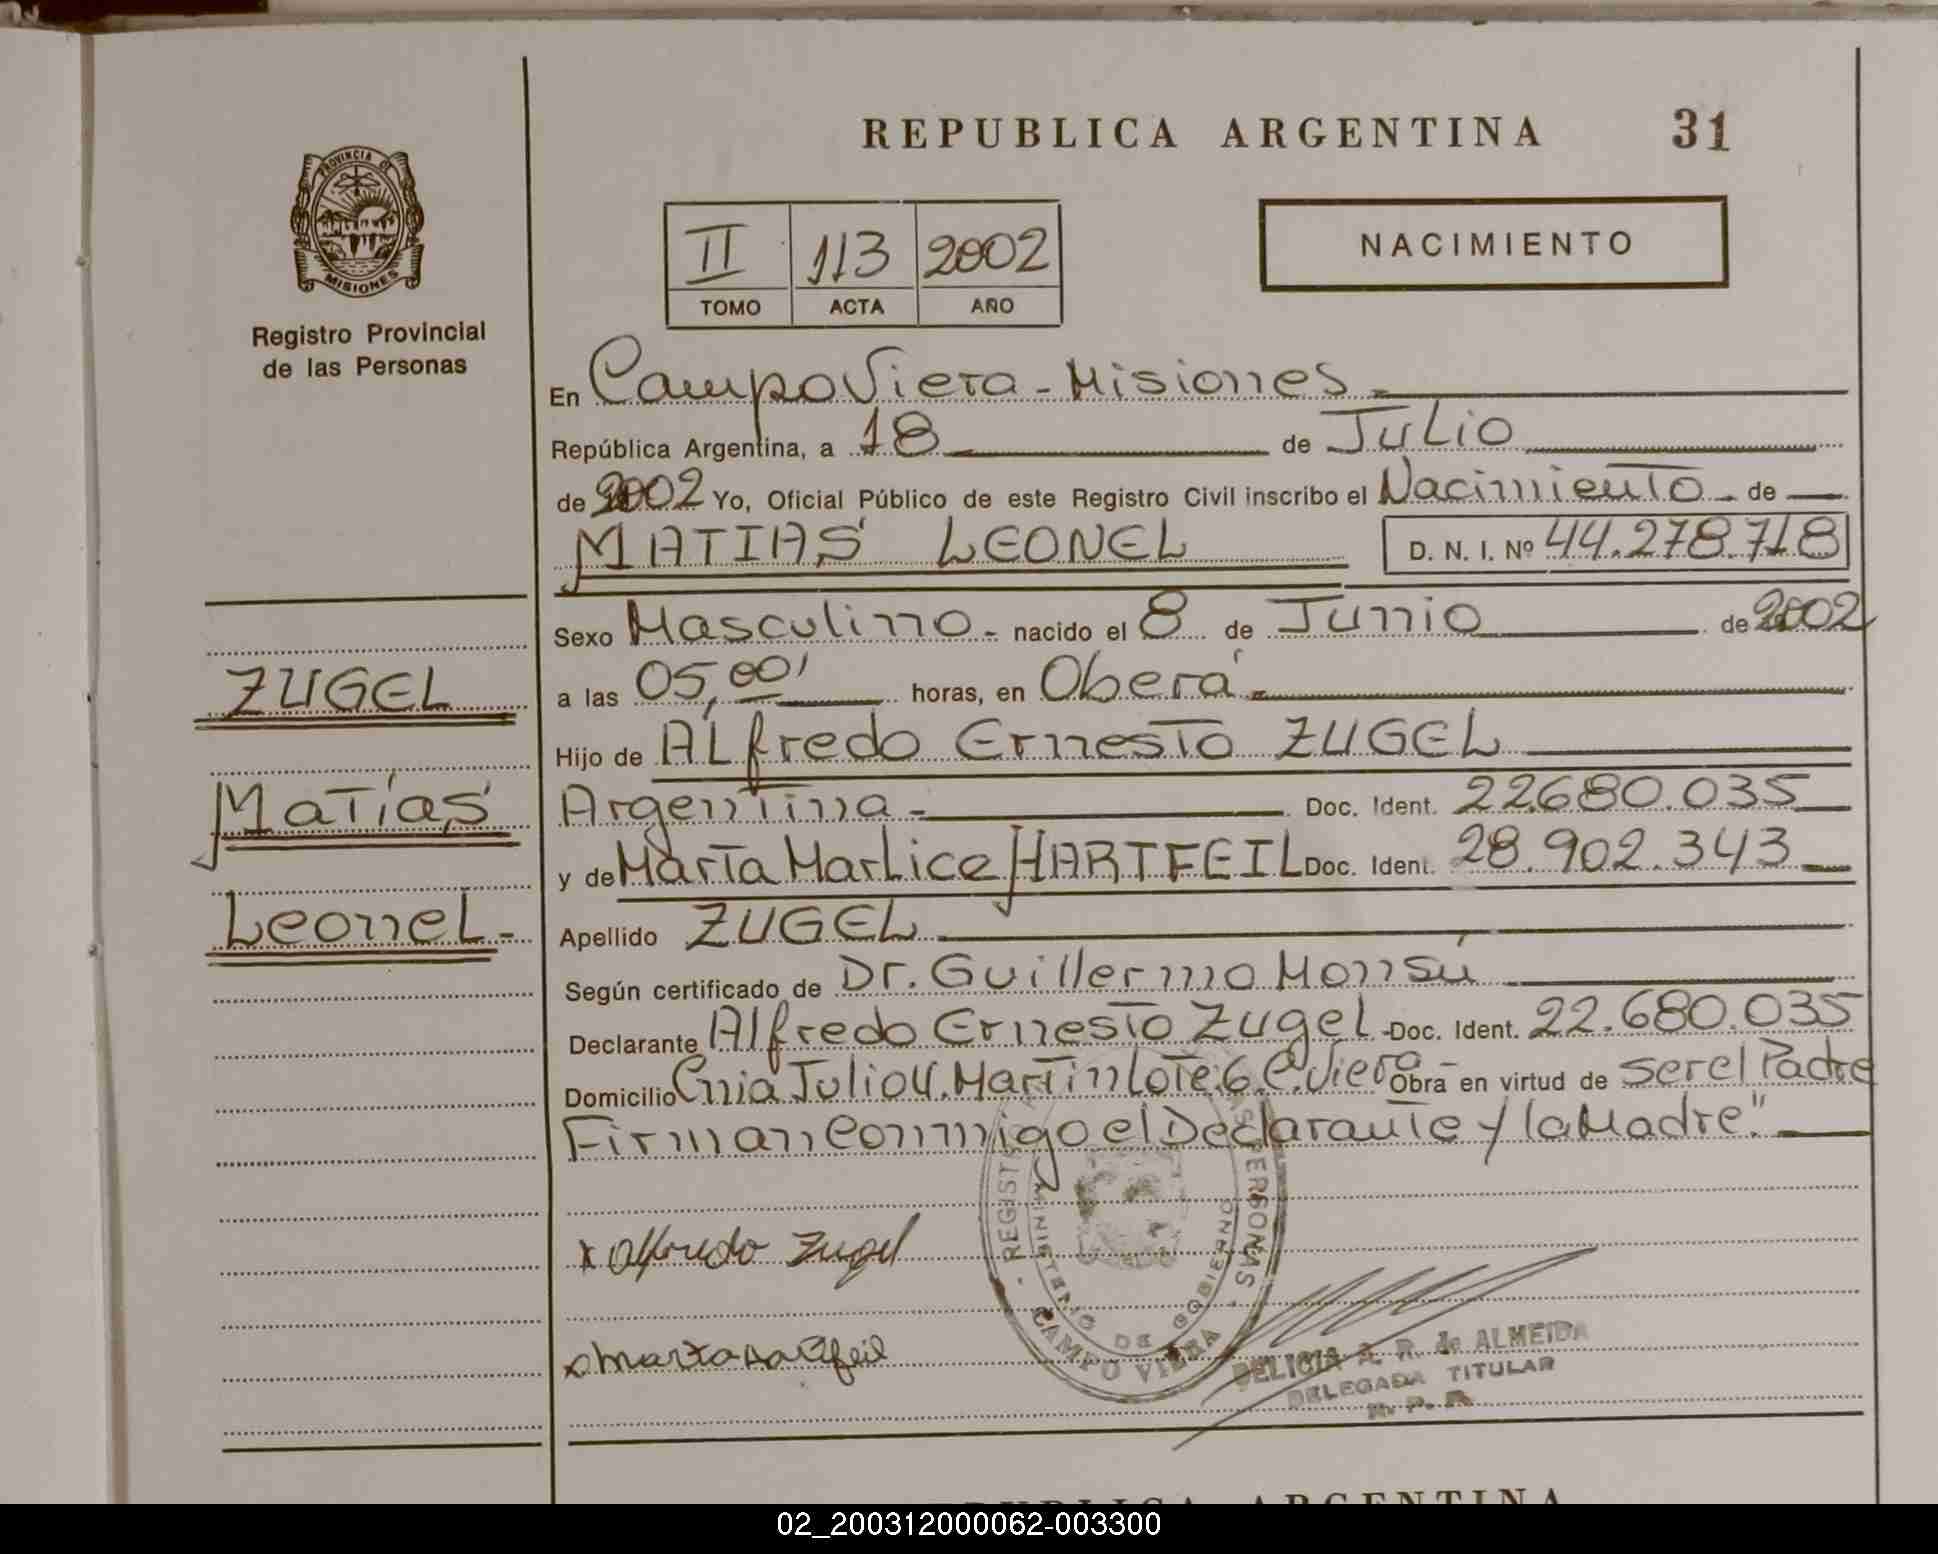 REPUBLICA ARGENTINA 31
PROVINCIA DE
MISIONES
Registro Provincial
de las Personas
II 113 2002
TOMO ACTA AÑO
NACIMIENTO
En Campo Viera - Misiones -
República Argentina, a 18 de Julio
de 2002 Yo, Oficial Público de este Registro Civil inscribo el Nacimiento - de
MATIAS LEONEL D. N. I. Nº 44.278.718
Sexo Masculino - nacido el 8 de Junio de 2002
a las 05,00' horas, en Oberá -
Hijo de Alfredo Ernesto ZUGEL
Argentina - Doc. Ident. 22.680.035
y de Marta Marlice HARTFEIL Doc. Ident. 28.902.343
Apellido ZUGEL
Según certificado de Dr. Guillermo Monsú
Declarante Alfredo Ernesto Zugel - Doc. Ident. 22.680.035
Domicilio Cnia Julio U. Martin Lote 6 C. Viera - Obra en virtud de ser el Padre
Firman conmigo el Declarante y la Madre"
ZUGEL
Matías
Leonel -
x Alfredo Zugel
x Marta Hartfeil
- REGISTRO PERSONAS -
MINISTERIO DE GOBIERNO
CAMPO VIERA
DELICIA A. R. de ALMEIDA
DELEGADA TITULAR
R. P. P.
REPUBLICA ARGENTINA
02_200312000062-003300